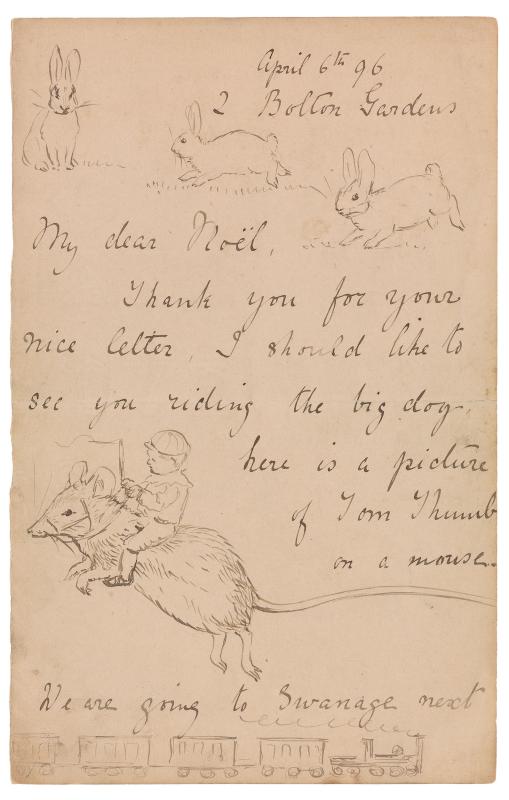 April 6th 96
2 Bolton Gardens
My dear Noël,
Thank you for your
nice letter, I should like to
see you riding the big dog,
here is a picture
of Tom Thumb
on a mouse.
We are going to Swanage next